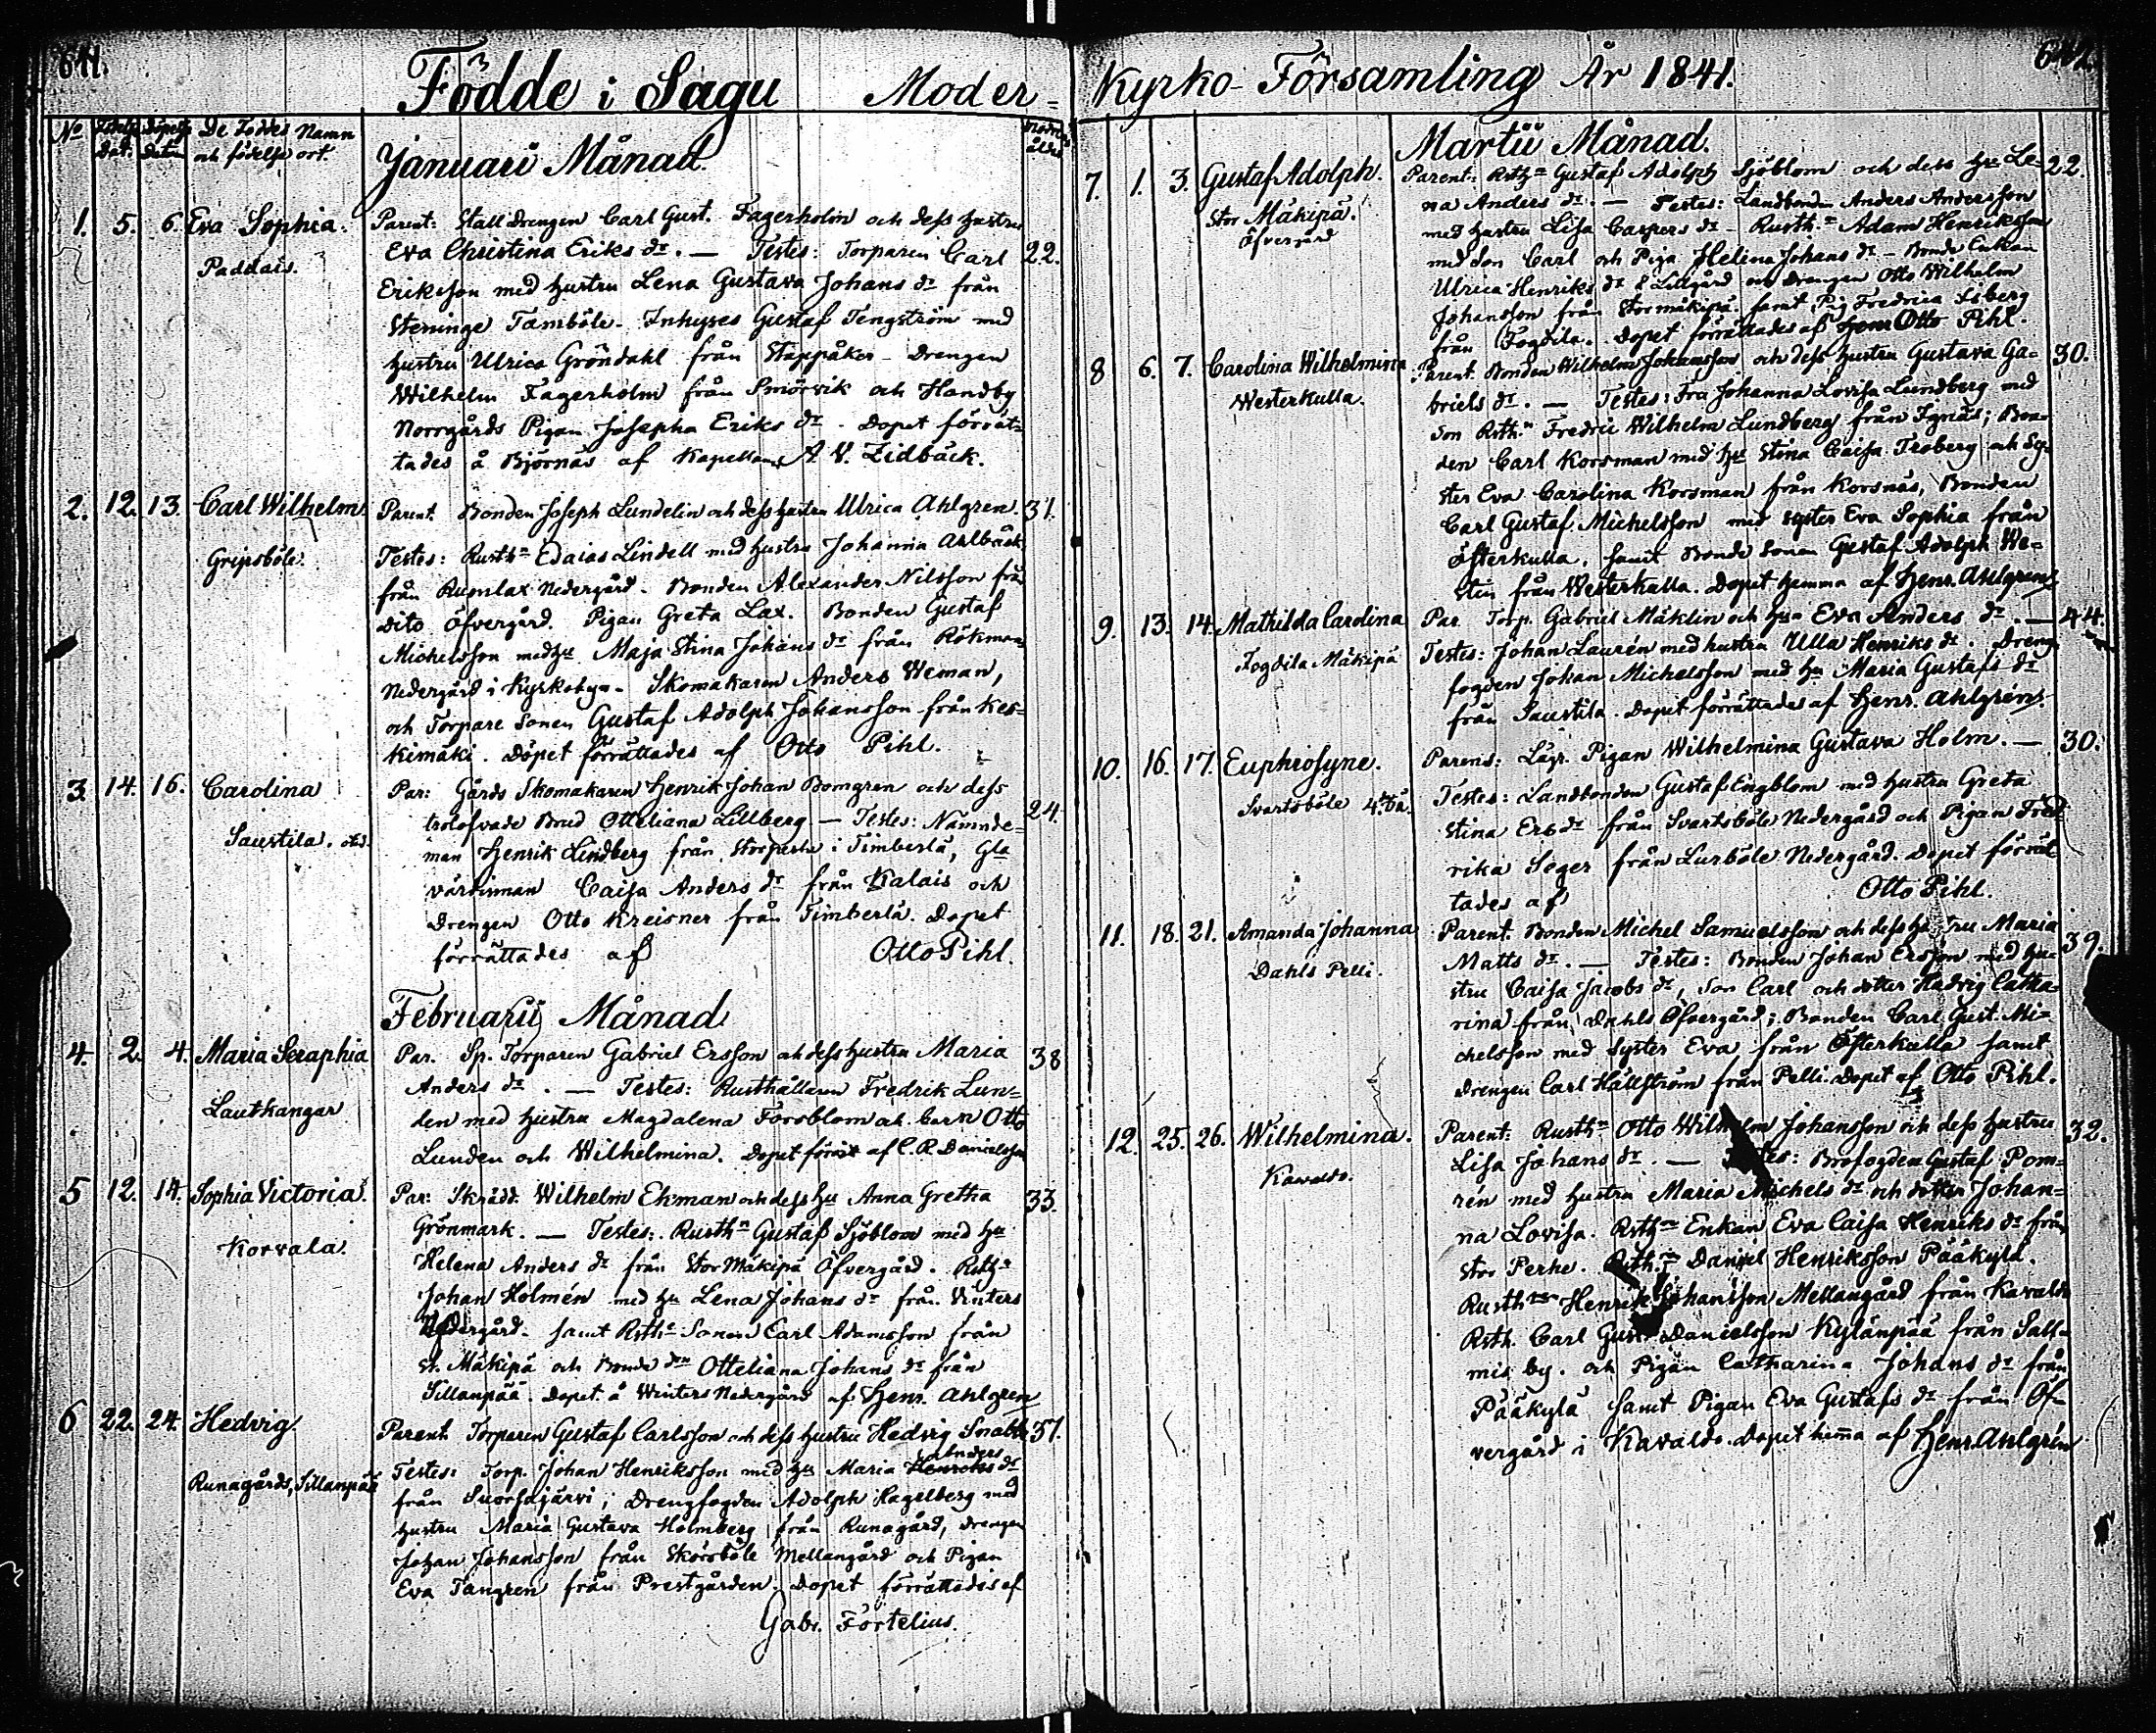 641.
Födde i Sagu Moder=
No Födelse Dat. Döpelse datum De Föddes Namn och födelse ort. Modrens ålder
Januari Månad.
1. 5. 6. Eva Sophia. Parent: Stalldrengen Carl Gust. Fagerholm och dess hustru
Eva Christina Eriks dr. — Testes: Torparen Carl 22.
Paddais. Eriksson med hustru Lena Gustava Johans dr från
Steninge Tamböle. Inhyses Gustaf Tengström med
hustru Ulrica Gröndahl från Stappåker - Drengen
Wilhelm Fagerholm från Smörvik och Handby
Norrgårds Pigan Josepha Eriks dr. Dopet förrät=
tades å Björnäs af Kapellan A. V. Zidbäck.
2. 12. 13. Carl Wilhelm Parent. Bonden Joseph Lundelin och dess hustru Ulrica Ahlgren. 31.
Gripsböle. Testes: Rusth:n Edaias Lindell med hustru Johanna Ahlbäck
från Rumlax Nedergård. Bonden Alexander Nilsson från
dito Öfvergård. Pigan Greta Lax. Bonden Gustaf
Michelsson med hu Maja Stina Johans dr från Rökman
Nedergård i Kyrkobyn. Skomakaren Anders Weman,
och Torpare Sonen Gustaf Adolph Johansson från Kes=
kimäki. Döpet förrättades af Otto Pihl.
3. 14. 16. Carolina Par: Gårds Skomakaren Henrik Johan Bomgren och dess
trolofvade Brud Otteliana Lillberg — Testes: Nämnde= 24.
Saustila. man Henrik Lindberg från Storperhe i Timberlä, Gla
värdinnan Caisa Anders dr från Kalais och
Drengen Otto Kreisner från Timberlä. Dopet
förrättades af Otto Pihl.
Februarii Månad
4. 2. 4. Maria Seraphia Par. Sp. Torparen Gabriel Ersson och dess hustru Maria 38
Anders dr. — Testes: Rusthållaren Fredrik Lun=
Lautkangar den med hustru Magdalena Forsblom och barn Otto
Lunden och Wilhelmina. Dopet förrät af C. R. Danielsson
5 12. 14. Sophia Victoria. Par: Skrädd. Wilhelm Ekman och dess hu Anna Gretha 33.
Grönmark. — Testes: Rusth:n Gustaf Sjöblom med hu
Korvala. Helena Anders dr från Stor Mäkipä Öfvergård. Rsth:n
Johan Holmén med hu Lena Johans dr från Winters
Nedergård. Samt Rsth:n Sonen Carl Adamsson från
St. Mäkipä och Bonde dn Otteliana Johans dr från
Sillanpää. Dopet å Winters Nedergård af Henr. Ahlgren
6 22. 24. Hedvig. Parent. Torparen Gustaf Carlsson och dess hustru Hedvig Snabb 37.
Testes: Torp. Johan Henriksson med hu Maria Henriks Anders dr
Runagårds, Sillanpää från Suorsajärvi; Drengfogden Adolph Hagelberg med
hustru Maria Gustava Holmberg från Runagård, Drengen
Johan Johansson från Skörböle Mellangård och Pigan
Eva Tängren från Prestgården. Dopet förrättades af
Gabr. Förtelius.
642.
Kyrko-Församling År 1841.
Martii Månad.
7. 1. 3. Gustaf Adolph. Parent: Rsth:n Gustaf Adolph Sjöblom och dess hu Le= 22.
Stor Mäkipä. na Anders dr. — Testes: Landbonden Anders Andersson
Öfvergård med hustru Lisa Caspers dr - Rusth:n Adam Henriksson
med Son Carl och Piga Helina Johans dr - Bonde Enkan
Ulrica Henriks dr & Lillgård och Drengen Otto Wilhelm
Johansson från Stormäkipä samt Pig. Fredrica Siberg
från Fogdila. Dopet förrättades af Herr Otto Pihl.
8 6. 7. Carolina Wilhelmina Parent. Bonden Wilhelm Johansson och dess hustru Gustava Ga= 30.
Westerkulla. briels dr. — Testes: Fru Johanna Lovisa Lundberg med
Son Rsth:n Fredric Wilhelm Lundberg från Isnäs; Bon=
den Carl Korsman med hu Stina Caisa Froberg och Sy=
ster Eva Carolina Korsman från Korsnäs, Bonden
Carl Gustaf Michelsson med syster Eva Sophia från
Österkulla, samt Bonde Sonen Gustaf Adolph We=
sten från Westerkulla. Dopet hemma af Henr. Ahlgren
9. 13. 14. Mathilda Carolina Par. Torp. Gabriel Mäklin och hu Eva Anders dr. — 44.
Fogdila Mäkipä Testes: Johan Laurén med hustru Ulla Henriks dr. Dreng
fogden Johan Michelsson med hu Maria Gustafs dr
från Saustila. Dopet förrättades af Henr. Ahlgrén.
10. 16. 17. Euphrosyne. Parens: Lägr. Pigan Wilhelmina Gustava Holm. — 30.
Svartsböle Testes: Landbonden Gustaf Engblom med hustru Greta
Stina Ers dr från Svartsböle Nedergård och Pigan Fred
rika Seger från Lurböle Nedergård. Dopet förrät=
tades af Otto Pihl.
11. 18. 21. Amanda Johanna Parent. Bonden Michel Samuelsson och dess hustru Maria 39.
Dahls Pelli. Matts dr. — Testes: Bonden Johan Ersson med hu=
stru Caisa Jacobs dr, Son Carl och dotter Hedvig Catha
rina från Dahls Öfvergård; Bonden Carl Gust. Mi=
chelsson med Syster Eva från Österkulla samt
Drengen Carl Hällström från Pelli. Dopet af Otto Pihl.
12. 25. 26. Wilhelmina. Parent: Rusth:n Otto Wilhelm Johansson och dess hustru 32.
Kavaldo. Lisa Johans dr. — Testes: Brofogden Gustaf Pom=
rén med hustru Maria Michels dr och dotter Johan=
na Lovisa. Rsth:ne Enkan Eva Caisa Henriks dr från
Stor Perhe. Rsth:n Daniel Henriksson Pääkylä.
Rusth:n Henrik Johansson Mellangård från Kavaldo
Rsth. Carl Gust. Danielsson Kylänpää från Salt=
mis by. och Pigan Catharina Johans dr från
Pääkylä samt Pigan Eva Gustafs dr från Öf=
vergård i Kavaldo. Dopet hema af Henr. Ahlgrén